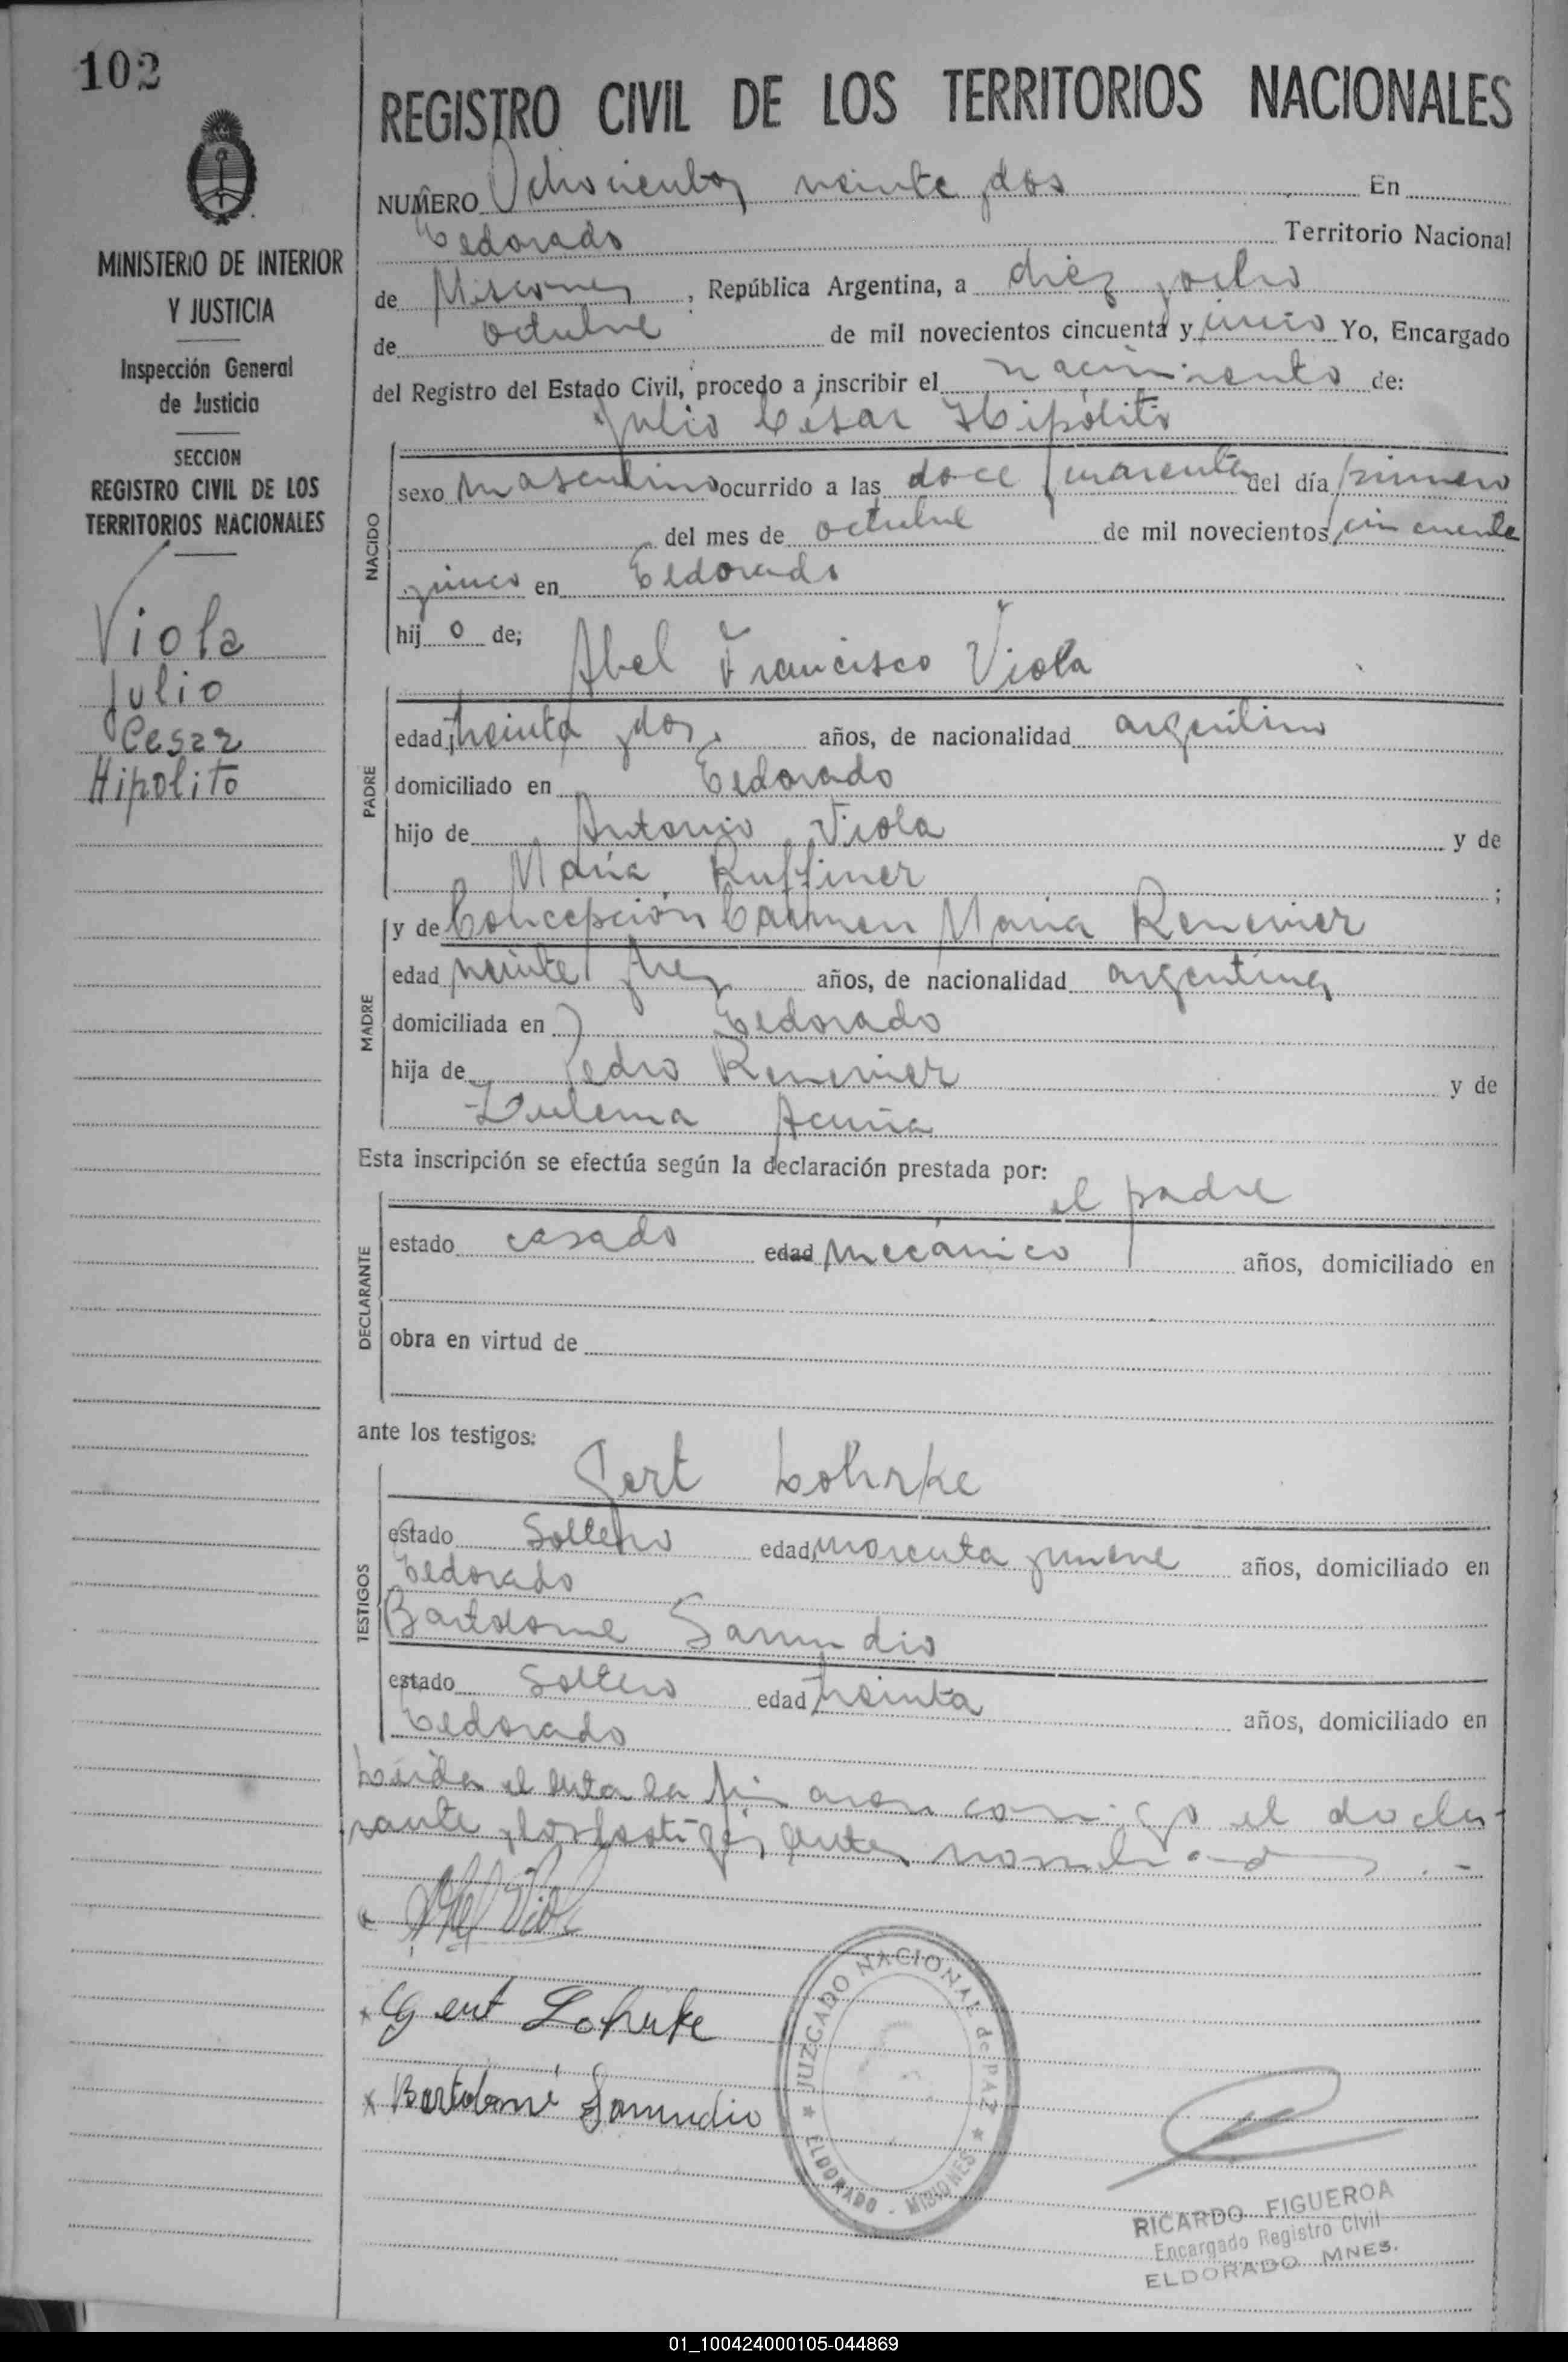 102
REGISTRO CIVIL DE LOS TERRITORIOS NACIONALES
MINISTERIO DE INTERIOR
Y JUSTICIA
Inspección General
de Justicia
SECCION
REGISTRO CIVIL DE LOS
TERRITORIOS NACIONALES
Viola
Julio
Cesar
Hipolito
NUMERO Ochocientos veinte y dos En
Eldorado Territorio Nacional
de Misiones, República Argentina, a diez y ocho
de octubre de mil novecientos cincuenta y cinco Yo, Encargado
del Registro del Estado Civil, procedo a inscribir el nacimiento de:
Julio César Hipólito
NACIDO
sexo masculino ocurrido a las doce y cuarenta del día primero
del mes de octubre de mil novecientos cincuenta
y cinco en Eldorado
hijo de;
Abel Francisco Viola
PADRE
edad treinta y dos años, de nacionalidad argentino
domiciliado en Eldorado
hijo de Antonio Viola y de
María Ruffiner;
MADRE
y de Concepción Carmen María Renevier
edad veinte y tres años, de nacionalidad argentina
domiciliada en Eldorado
hija de Pedro Renevier y de
Zulema Acuña
Esta inscripción se efectúa según la declaración prestada por:
el padre
DECLARANTE
estado casado edad mecánico años, domiciliado en
obra en virtud de
ante los testigos:
Gert Lohrke
TESTIGOS
estado Soltero edad cuarenta y nueve años, domiciliado en
Eldorado
Bartolome Samudio
estado Soltero edad treinta años, domiciliado en
Eldorado
Leída el acta la firman conmigo el decla-
rante y los testigos antes nombrados
Abel Viola
Gert Lohrke
Bartolomé Samudio
JUZGADO NACIONAL de PAZ
ELDORADO - MISIONES
RICARDO FIGUEROA
Encargado Registro Civil
ELDORADO MNES.
01_100424000105-044869